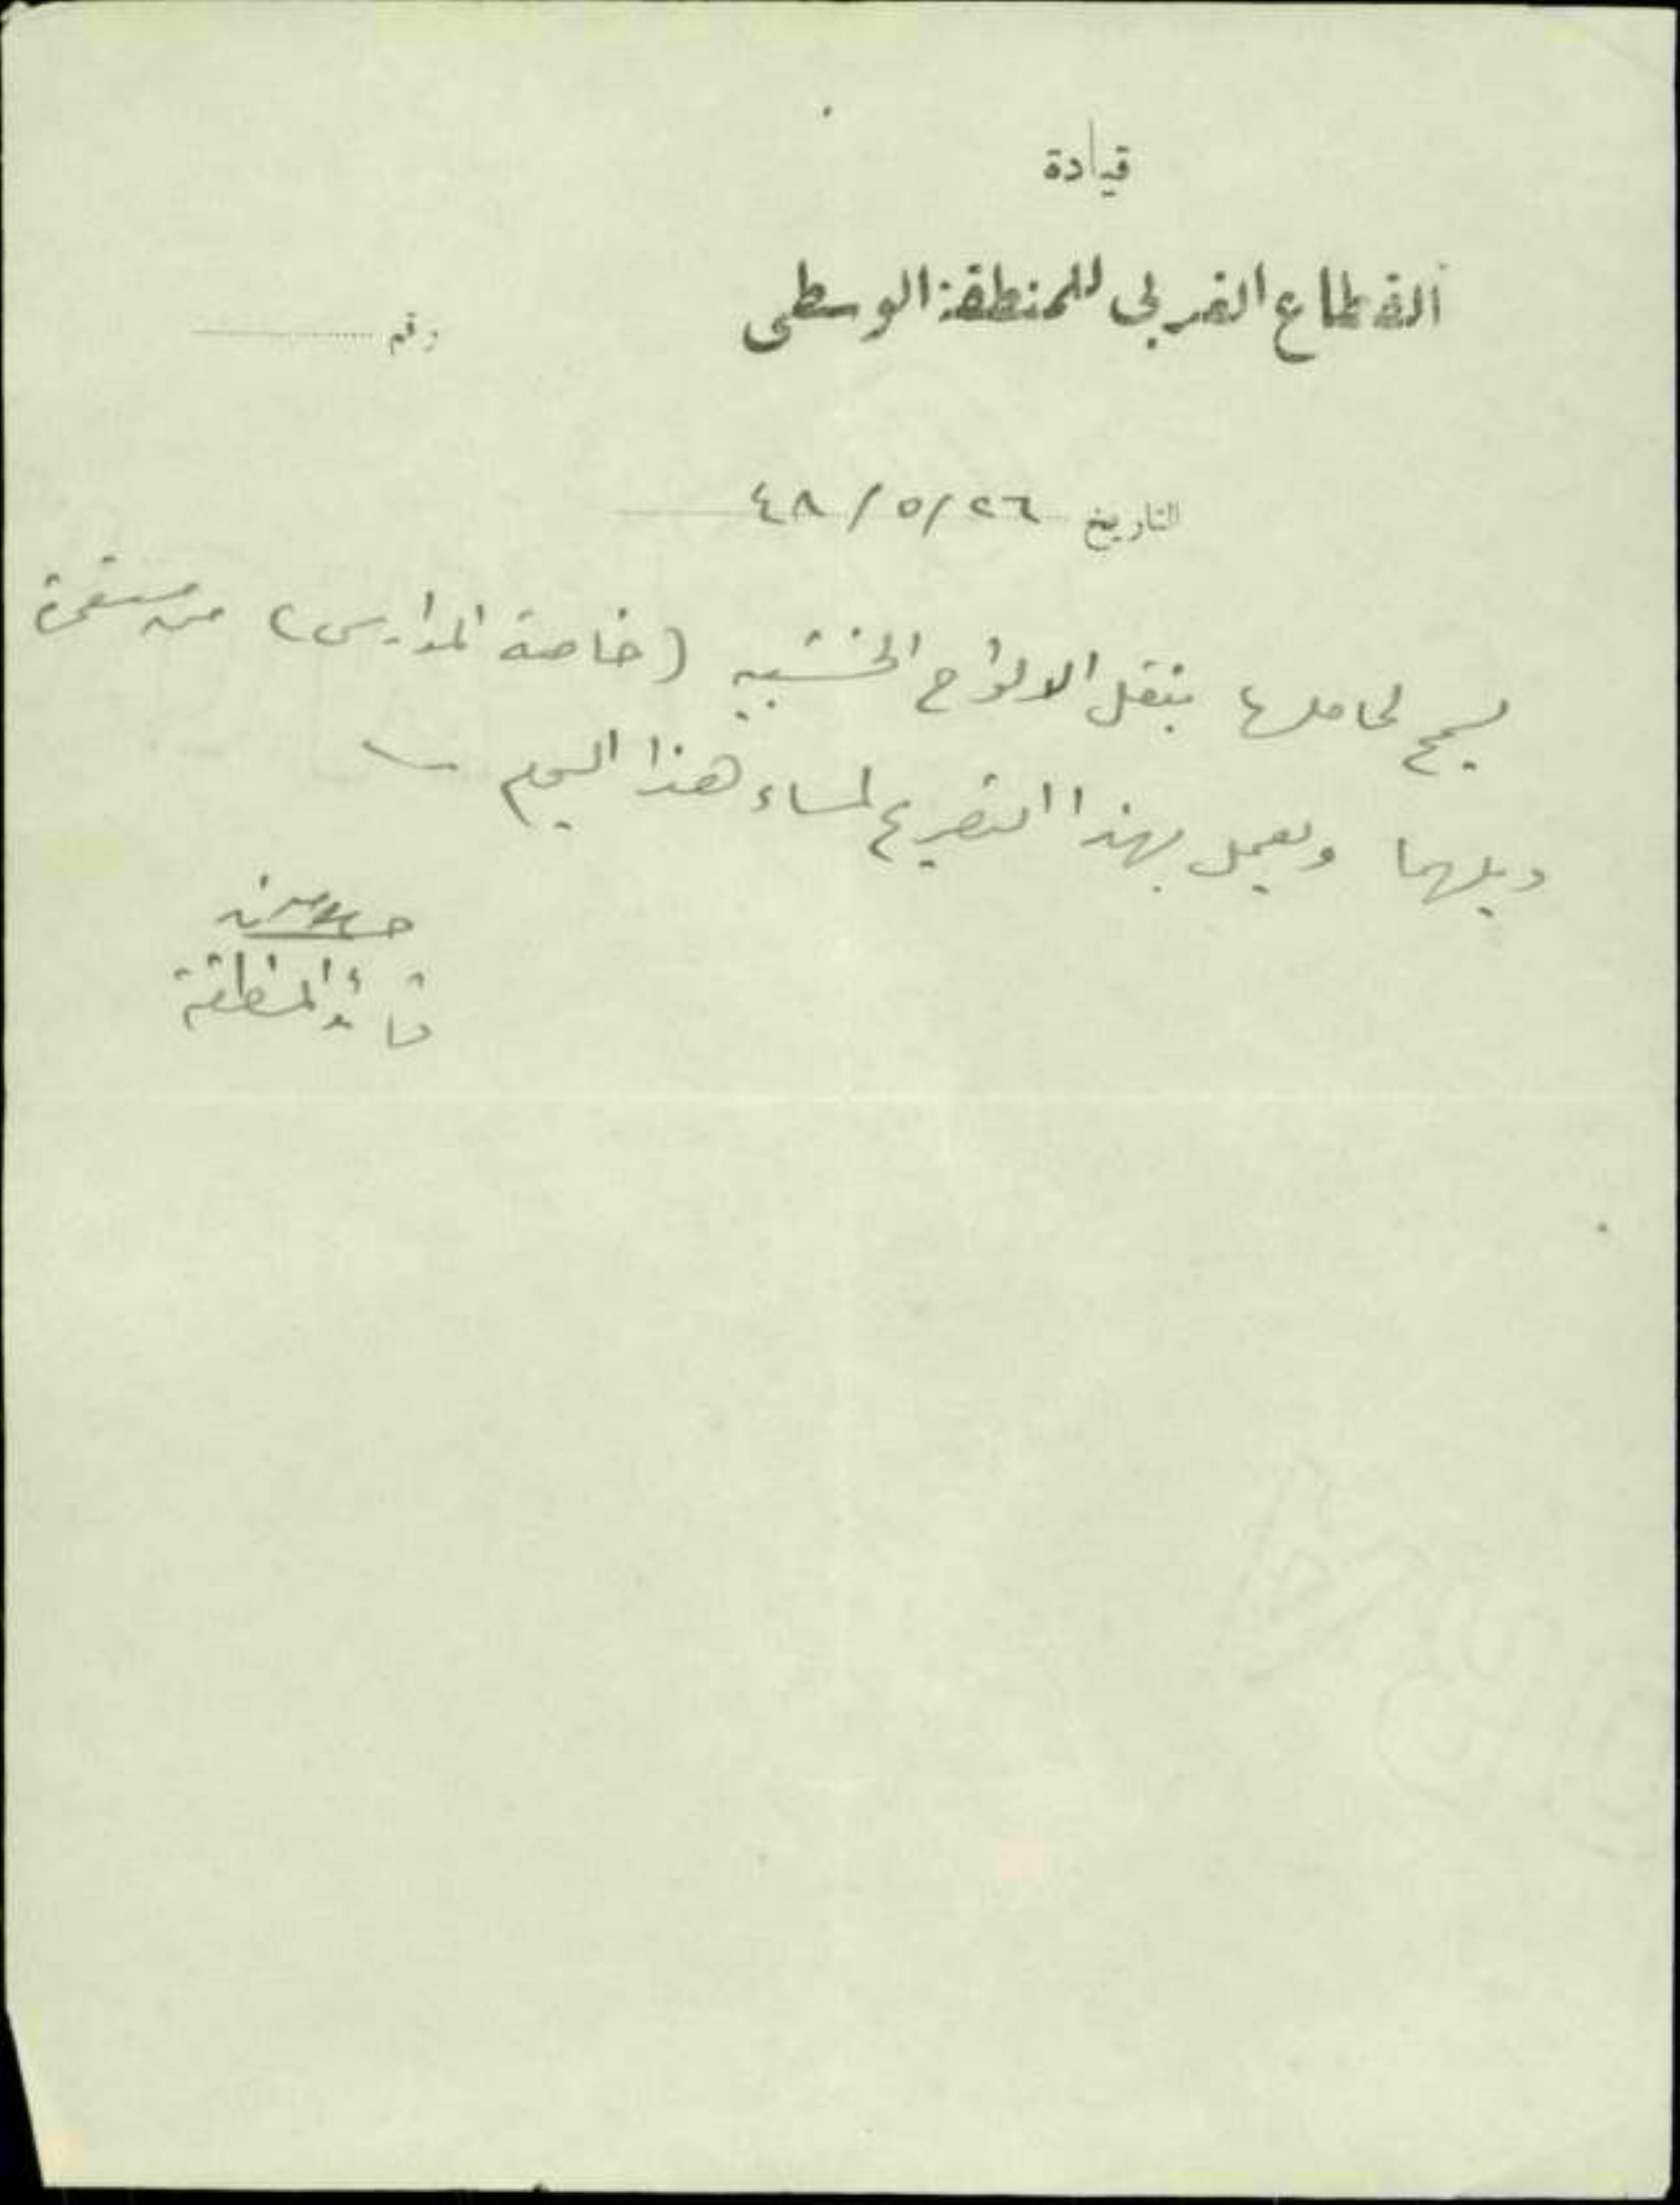 قيادة
القطاع الغربي للمنطقة الوسطى
رقم
التاريخ ٢٦/٥/٤٨
يسمح لحاملها بنقل الالواح الخشبيه (خاصة المدارس) من مستعمرة
ويلهما ويعمل بهذا التصريح لمساء هذا اليوم
قائد المنطقة